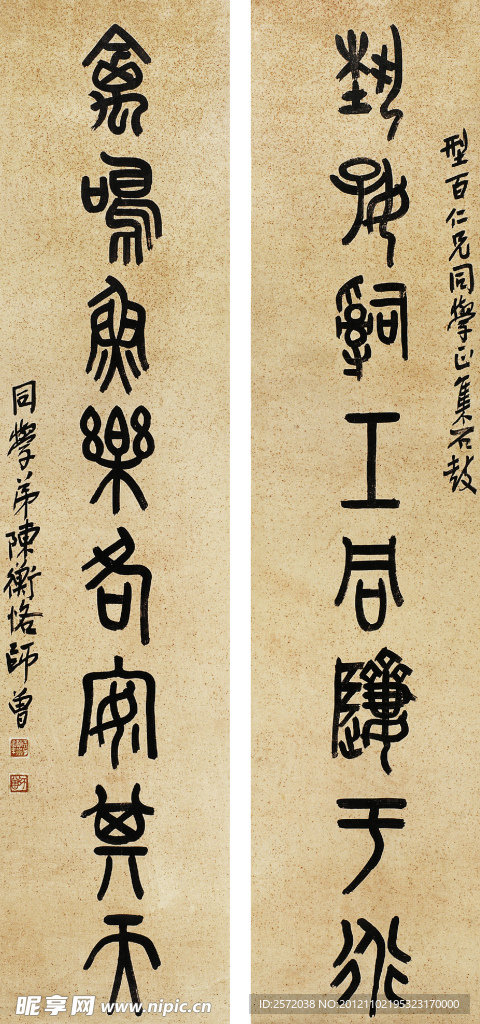 型百仁兄同學正集石鼓
好工同于
禽鳴魚樂各安其天
同學弟陳衡恪師曾
昵享网 www.nipic.cn
ID:2572038 NO:20121102195323170000